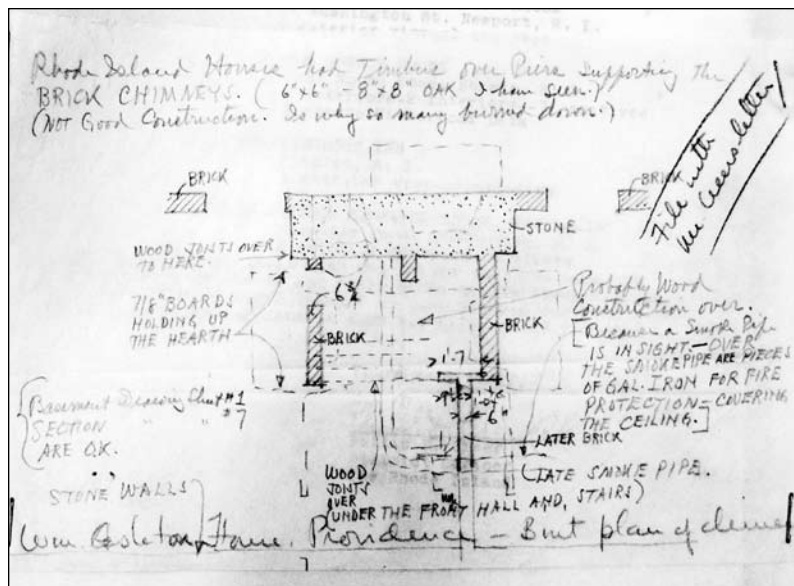 Washington St. Newport, R. I.
Rhode Island Houses had Timbers over Piers supporting the
BRICK CHIMNEYS. ( 6"x6" - 8"x8" OAK I have seen.)
(NOT Good Construction. Is why so many burned down.)
File with
letter
BRICK
BRICK
STONE
WOOD JOISTS OVER
TO HERE.
7/8" BOARDS
HOLDING UP
THE HEARTH
BRICK
BRICK
Probably Wood
Construction over.
[Because a Smoke Pipe
IS IN SIGHT - OVER
THE SMOKEPIPE ARE PIECES
OF GAL. IRON FOR FIRE
PROTECTION - COVERING
THE CEILING.]
1'-7
6"
LATER BRICK
Basement Drawing Sheet #1
SECTION " " " 7
ARE O.K.
(LATE SMOKE PIPE.
WOOD
JOISTS
OVER
UNDER THE FRONT HALL AND, STAIRS)
STONE WALLS
House. Providence - plan of